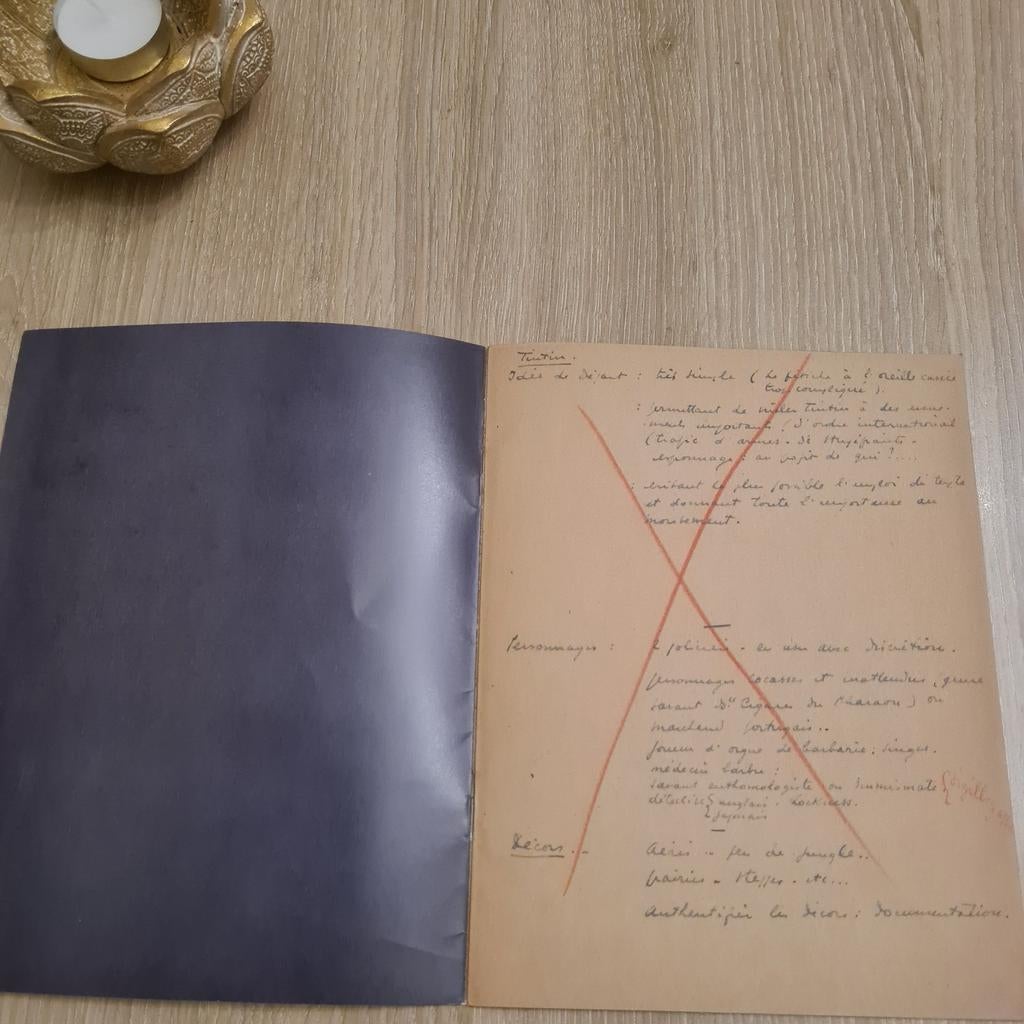 Tintin.
Idée de départ : très simple ( Le fétiche à l'oreille cassée
trop compliqué ).
: permettant de mêler Tintin à des évène-
ments importants d'ordre international
( trafic d'armes - de stupéfiants -
espionnage : au profit de qui ?....
: évitant le plus possible l'emploi de texte
et donnant toute l'importance au
mouvement.
Personnages : policiers - en user avec discrétion.
personnages cocasses et inattendus (genre
savant Cigares du Pharaon ) ou
marchand portugais..
joueur d'orgue de barbarie ; singes.
médecin barbu ;
savant enthomologiste ou numismate
détective { anglais.
{ japonais
Décors.. - peu de jungle..
prairies - steppes - etc...
Authentifier les décors : documentation.